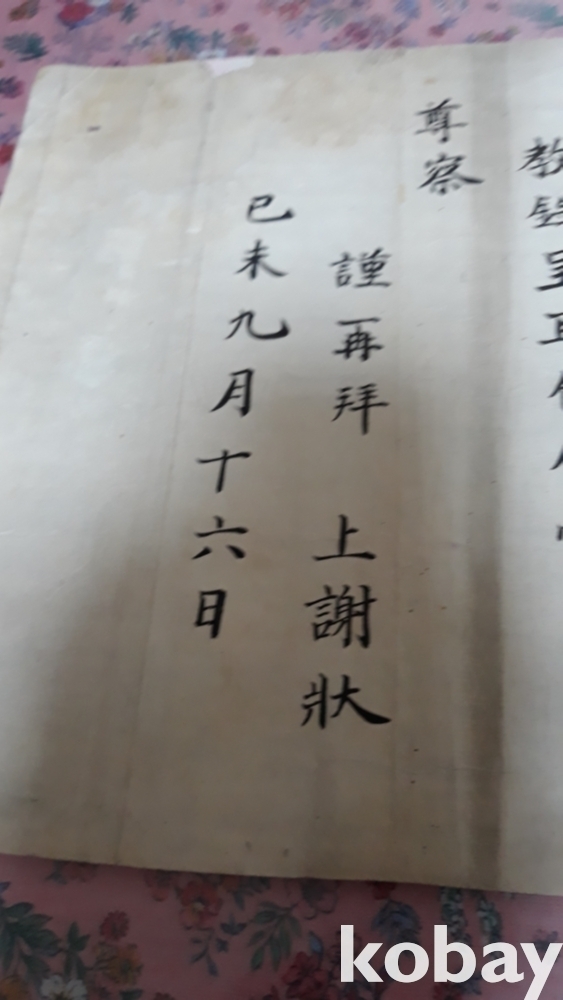 教
尊察
謹再拜 上謝狀
己未九月十六日
kobay